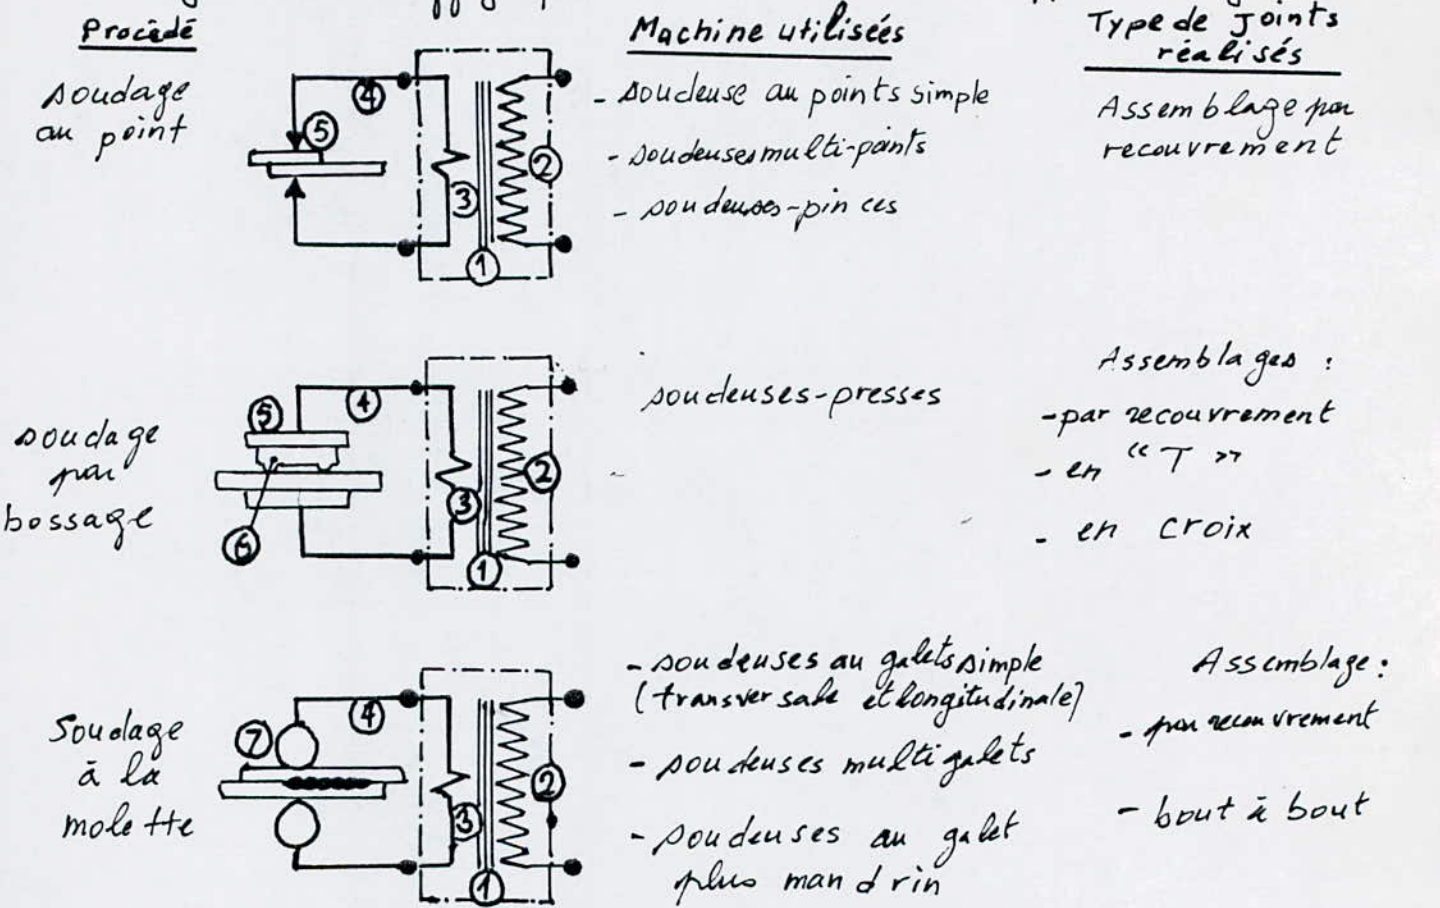 Procédé
Machine utilisées
Type de Joints
réalisés
soudage
au point
4
5
3
2
1
- soudeuse au points simple
- soudeuses multi-points
- soudeuses-pinces
Assemblage par
recouvrement
soudage
par
bossage
5
4
3
2
6
1
soudeuses-presses
Assemblages :
- par recouvrement
- en “ T ”
- en croix
Soudage
à la
molette
7
4
3
2
1
- soudeuses au galets simple
(transversale et longitudinale)
- soudeuses multi galets
- soudeuses au galet
plus mandrin
Assemblage :
- par recouvrement
- bout à bout